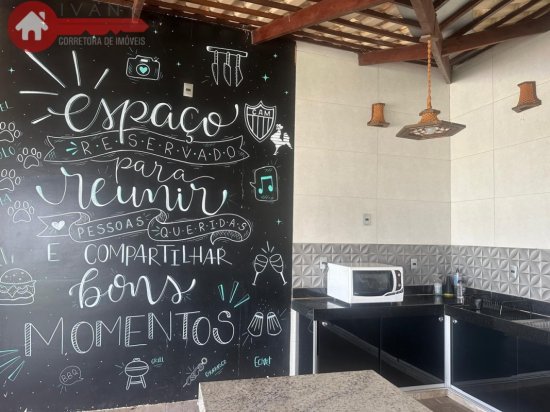 IVAN
CORRETORA DE IMÓVEIS
espaço
RESERVADO
CAM
para
reunir
PESSOAS QUERIDAS
E COMPARTILHAR
bons
MOMENTOS
BBQ
GRILL